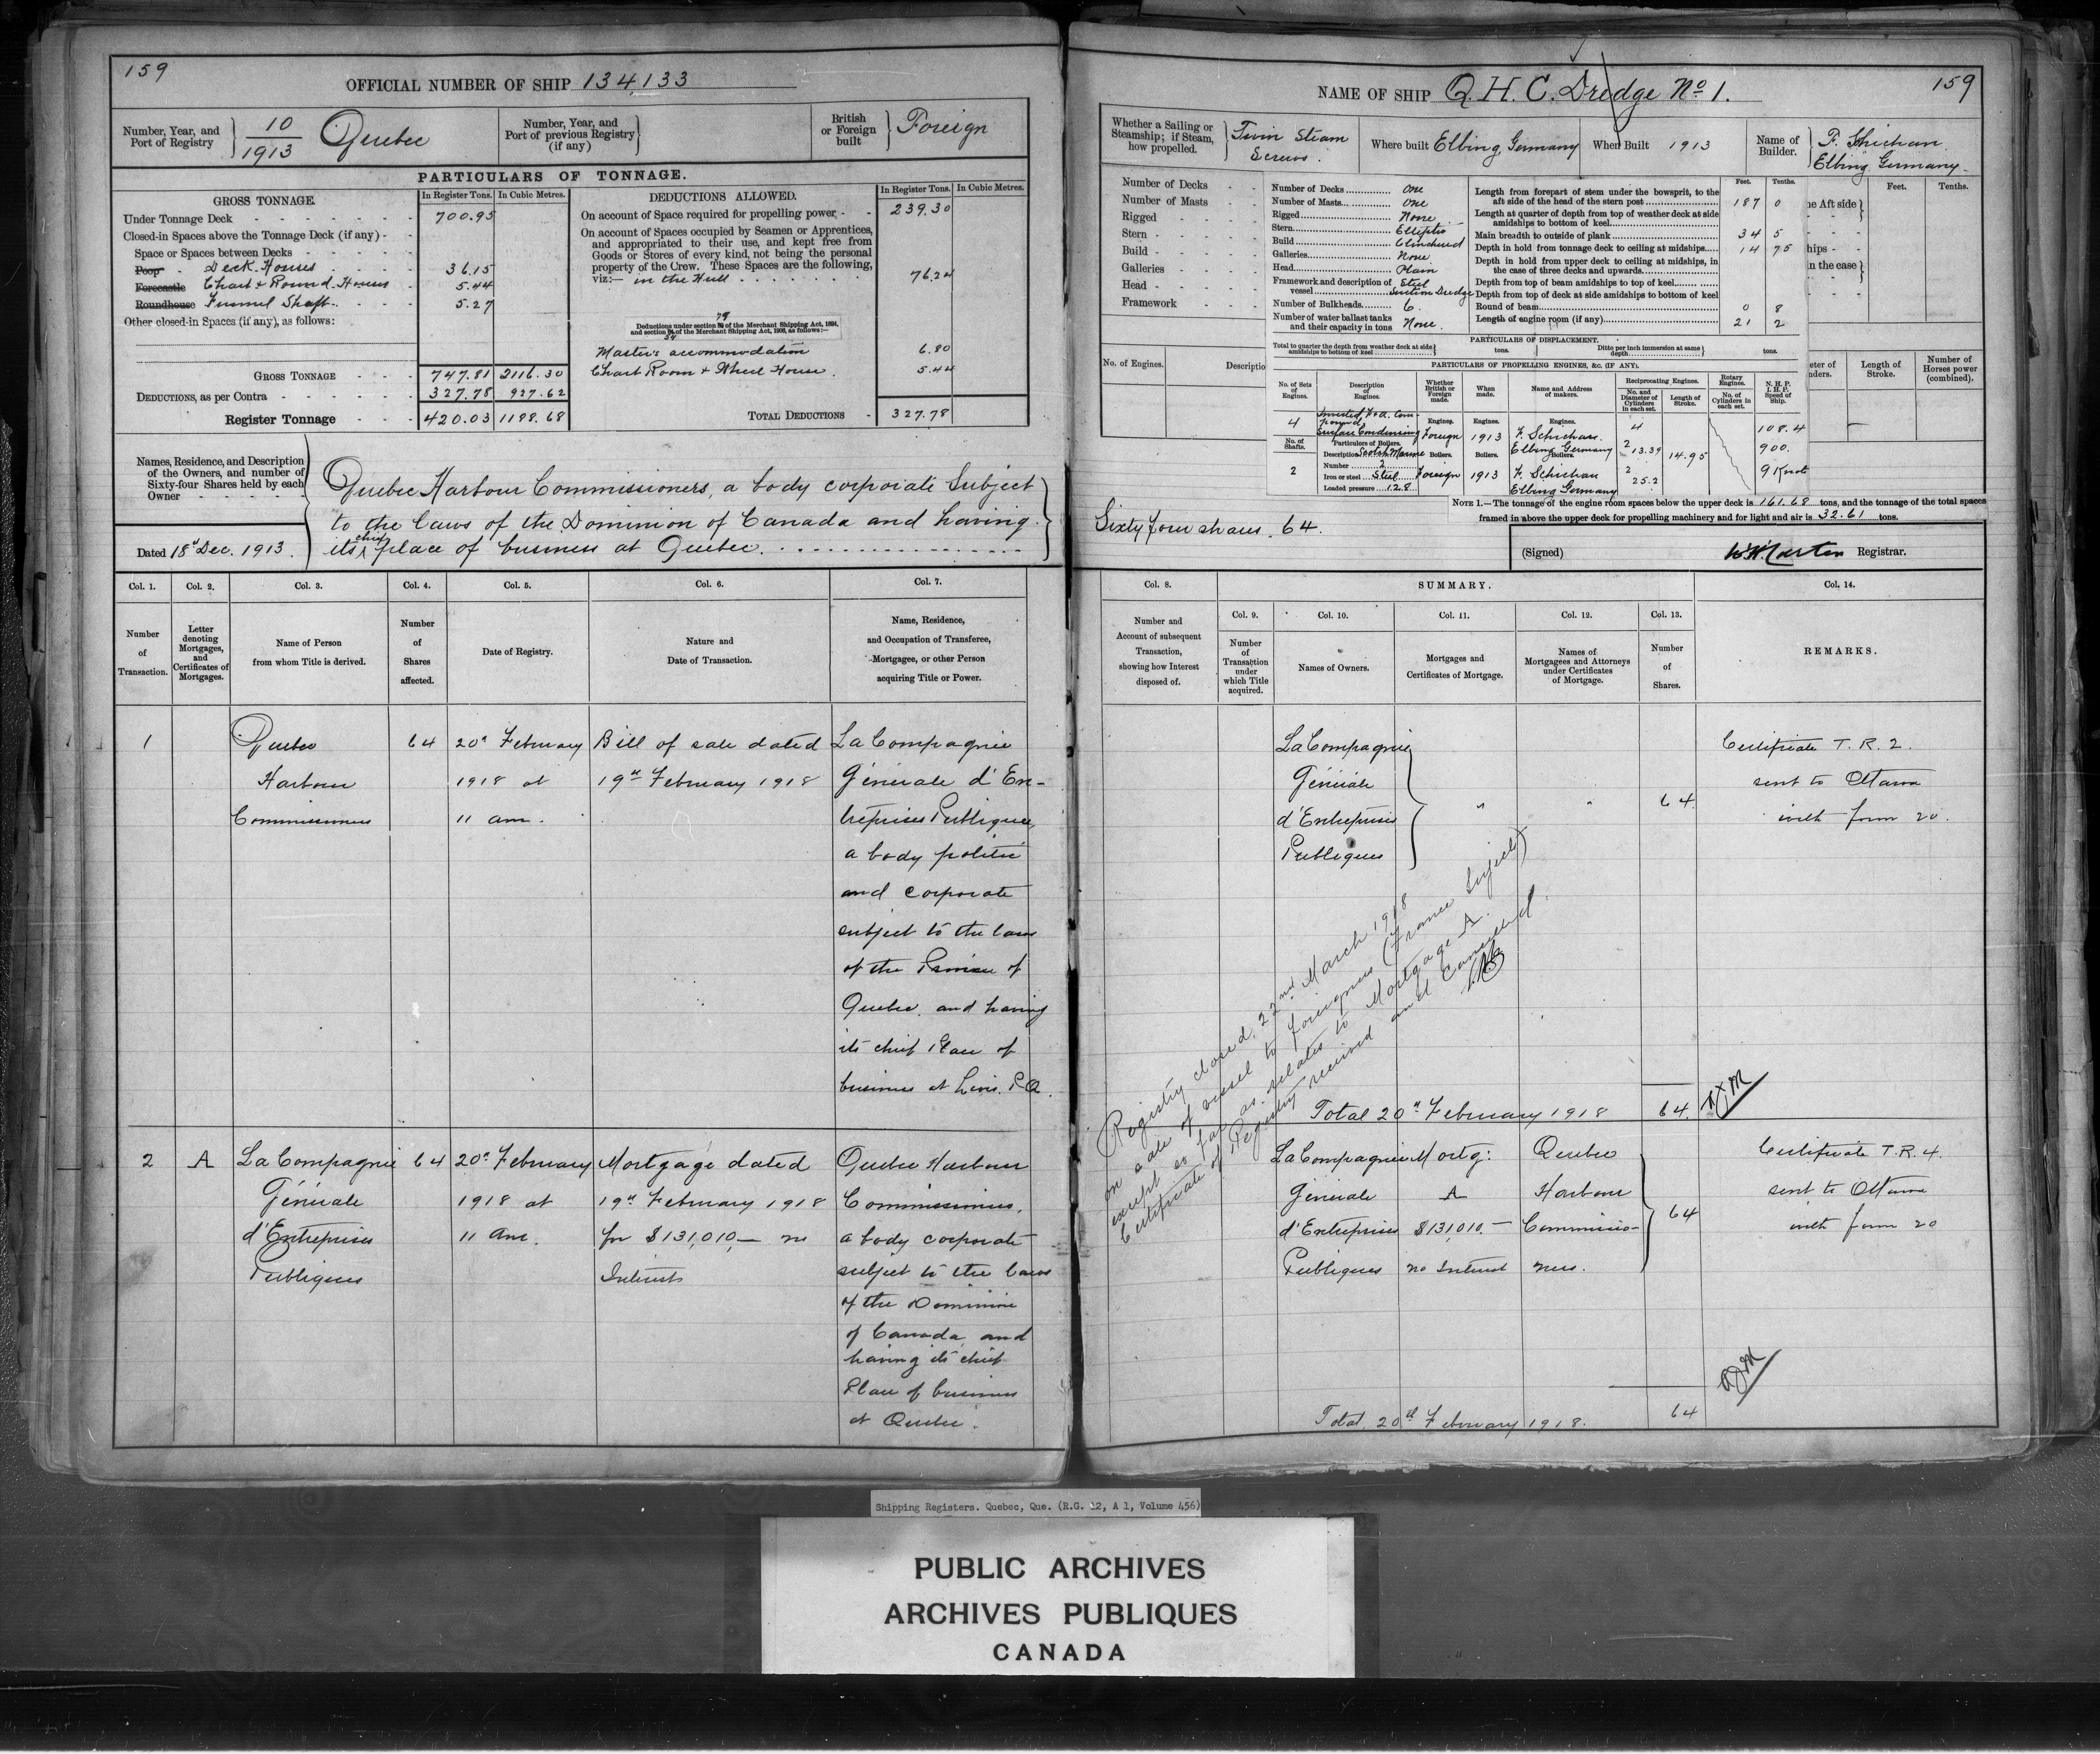 159
OFFICIAL NUMBER OF SHIP 134,133
Number, Year, and Port of Registry } 10/1913 Quebec
Number, Year, and Port of previous Registry (if any) }
British or Foreign built } Foreign
PARTICULARS OF TONNAGE.
GROSS TONNAGE. In Register Tons. In Cubic Metres.
Under Tonnage Deck 700.95
Closed-in Spaces above the Tonnage Deck (if any)
Space or Spaces between Decks
Poop Deck Houses 36.15
Forecastle Chart & Round Houses 5.44
Roundhouse Funnel Shaft 5.27
Other closed-in Spaces (if any), as follows:
GROSS TONNAGE 747.81 2116.30
DEDUCTIONS, as per Contra 327.78 927.62
Register Tonnage 420.03 1188.68
DEDUCTIONS ALLOWED. In Register Tons. In Cubic Metres.
On account of Space required for propelling power 239.30
On account of Spaces occupied by Seamen or Apprentices,
and appropriated to their use, and kept free from
Goods or Stores of every kind, not being the personal
property of the Crew. These Spaces are the following,
viz:— in the Hull 76.24
79
Deductions under section of the Merchant Shipping Act, 1894,
and section 54 of the Merchant Shipping Act, 1906, as follows:—
Master's accommodation 6.80
Chart Room & Wheel House 5.44
TOTAL DEDUCTIONS 327.78
Names, Residence, and Description
of the Owners, and number of
Sixty-four Shares held by each
Owner
Dated 18th Dec. 1913.
Quebec Harbour Commissioners, a body corporate subject
to the laws of the Dominion of Canada and having
its chief place of business at Quebec.
Col. 1. Number of Transaction.
Col. 2. Letter denoting Mortgages, and Certificates of Mortgages.
Col. 3. Name of Person from whom Title is derived.
Col. 4. Number of Shares affected.
Col. 5. Date of Registry.
Col. 6. Nature and Date of Transaction.
Col. 7. Name, Residence, and Occupation of Transferee, Mortgagee, or other Person acquiring Title or Power.
1
Quebec
Harbour
Commissioners
64
20th February
1918 at
11 am.
Bill of sale dated
19th February 1918
La Compagnie
Générale d'En-
treprises Publiques,
a body politic
and corporate
subject to the laws
of the Province of
Quebec, and having
its chief Place of
business at Levis. P.Q.
2
A
La Compagnie
Générale
d'Entreprises
Publiques
64
20th February
1918 at
11 am.
Mortgage dated
19th February 1918
for $131,010,— no
Interest
Quebec Harbour
Commissioners,
a body corporate
subject to the laws
of the Dominion
of Canada and
having its chief
Place of business
at Quebec.
NAME OF SHIP Q. H. C. Dredge No 1.
159
Whether a Sailing or Steamship; if Steam, how propelled. } Twin Steam Screws.
Where built Elbing, Germany
When Built 1913
Name of Builder. } F. Shichau. Elbing Germany.
Number of Decks
Number of Masts
Rigged
Stern
Build
Galleries
Head
Framework
Number of Decks One
Number of Masts One
Rigged None
Stern Elliptic
Build Clinched
Galleries None
Head Plain
Framework and description of vessel Steel Suction Dredge
Number of Bulkheads 6.
Number of water ballast tanks and their capacity in tons None.
Feet. Tenths.
Length from forepart of stem under the bowsprit, to the aft side of the head of the stern post 187 0
Length at quarter of depth from top of weather deck at side amidships to bottom of keel
Main breadth to outside of plank 34 5
Depth in hold from tonnage deck to ceiling at midships 14 75
Depth in hold from upper deck to ceiling at midships, in the case of three decks and upwards
Depth from top of beam amidships to top of keel
Depth from top of deck at side amidships to bottom of keel
Round of beam 0 8
Length of engine room (if any) 21 2
Feet. Tenths.
he Aft side
hips
n the case
PARTICULARS OF DISPLACEMENT.
Total to quarter the depth from weather deck at side amidships to bottom of keel } tons. Ditto per inch immersion at same depth } tons.
No. of Engines. Descriptio
PARTICULARS OF PROPELLING ENGINES, &C. (IF ANY).
No. of Sets of Engines.
Description of Engines.
Whether British or Foreign made.
When made.
Name and Address of makers.
Reciprocating Engines.
No. and Diameter of Cylinders in each set.
Length of Stroke.
Rotary Engines.
No. of Cylinders in each set.
N. H. P. I. H. P. Speed of Ship.
eter of nders. Length of Stroke. Number of Horses power (combined).
4 Inverted, F & A. Compound, Surface Condensing
Engines. Foreign
Engines. 1913
Engines. F. Schichau. Elbing Germany
4
2 13.39 14.95
2 25.2
108.4
900.
9 Knots
No. of Shafts. 2
Particulars of Boilers.
Description Scotch Marine
Number 2
Iron or steel Steel
Loaded pressure 128
Boilers. Foreign
Boilers. 1913
Boilers. F. Schichau Elbing Germany
NOTE 1.—The tonnage of the engine room spaces below the upper deck is 161.68 tons, and the tonnage of the total spaces
framed in above the upper deck for propelling machinery and for light and air is 32.61 tons.
Sixty four shares. 64.
(Signed) Registrar.
Col. 8. Number and Account of subsequent Transaction, showing how Interest disposed of.
SUMMARY.
Col. 9. Number of Transaction under which Title acquired.
Col. 10. Names of Owners.
Col. 11. Mortgages and Certificates of Mortgage.
Col. 12. Names of Mortgagees and Attorneys under Certificates of Mortgage.
Col. 13. Number of Shares.
Col. 14. REMARKS.
La Compagnie
Générale
d'Entreprises
Publiques
"
"
64
Certificate T. R. 2.
sent to Ottawa
with form 20.
Registry closed, 22nd March 1918
on sale of vessel to foreigners (France Subject)
except as far as relates to Mortgage A.
Certificate of Registry received and Cancelled.
Total 20th February 1918 64.
La Compagnie
Générale
d'Entreprises
Publiques
Mortg:
A
$131,010.—
no Interest
Quebec
Harbour
Commissio-
ners.
64
Certificate T. R. 4.
sent to Ottawa
with form 20
Total. 20th February 1918. 64
Shipping Registers. Quebec, Que. (R.G. 12, A 1, Volume 456)
PUBLIC ARCHIVES
ARCHIVES PUBLIQUES
CANADA